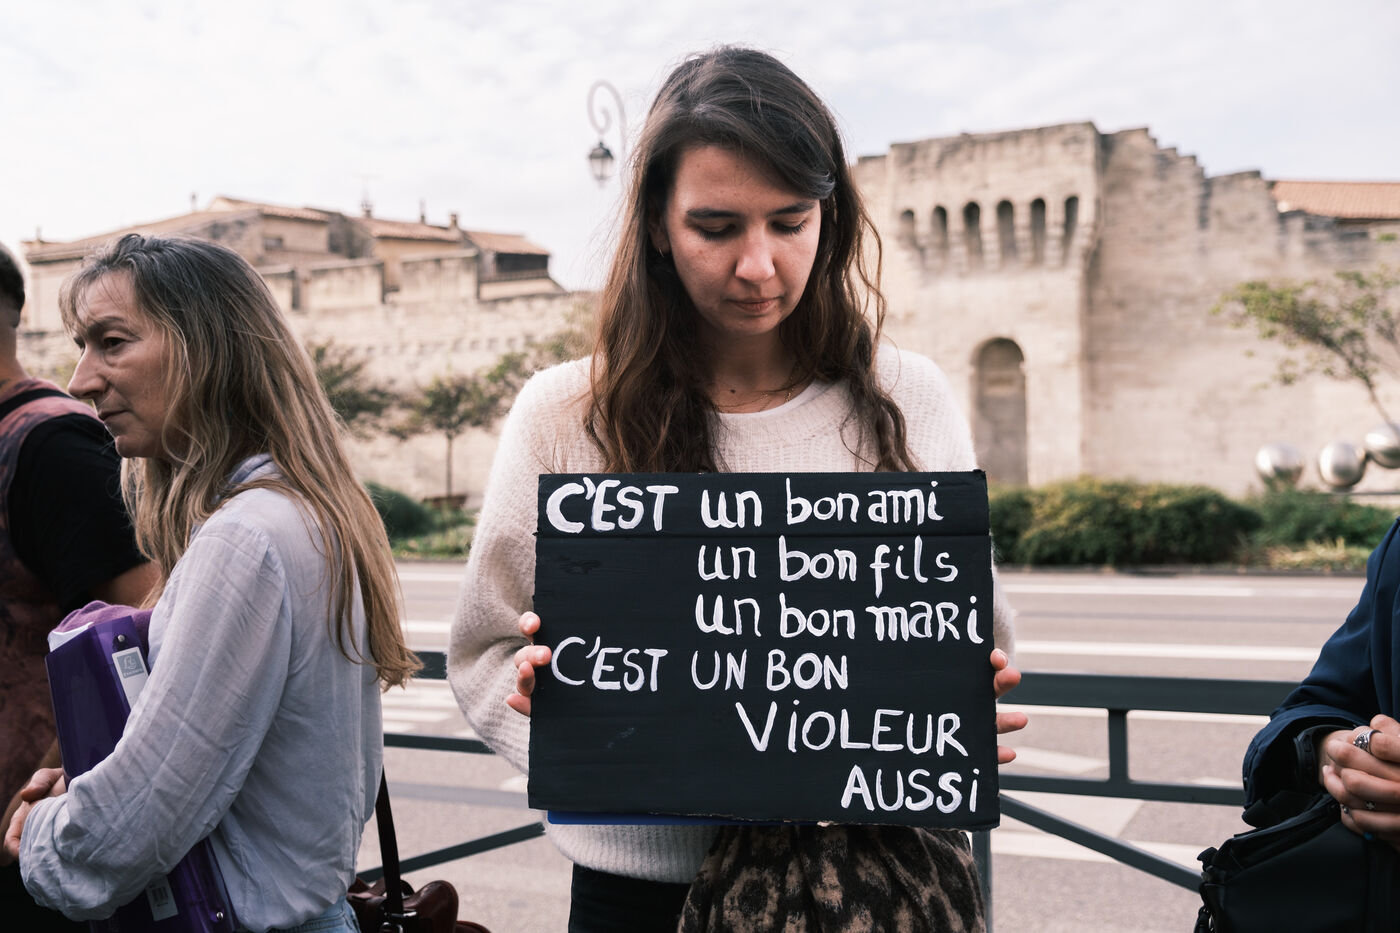 C'EST un bon ami
un bon fils
un bon mari
C'EST UN BON
ViOLEUR
AUSSi